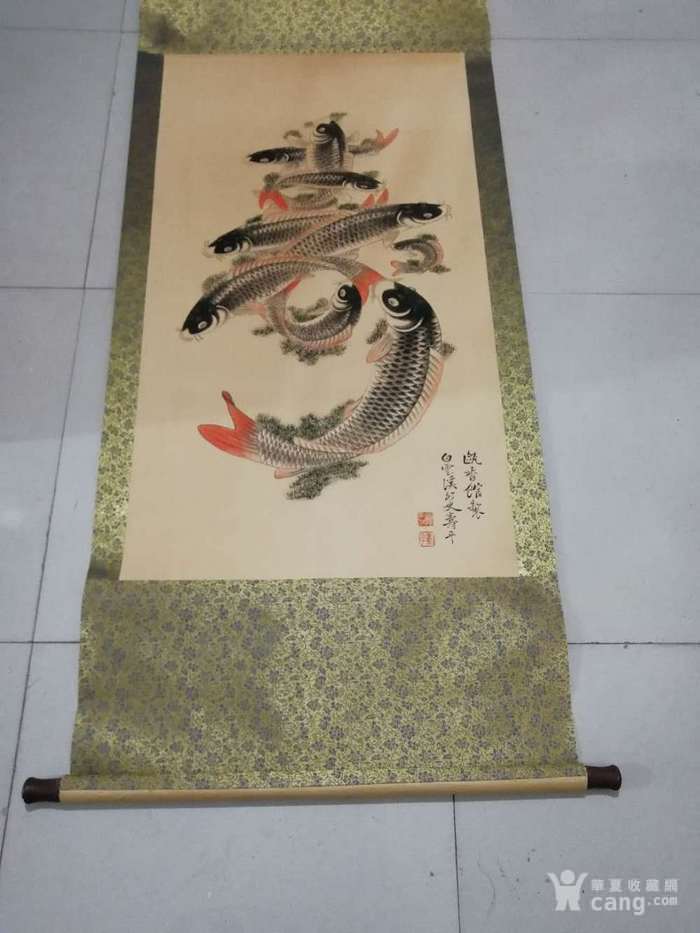 甌香館製
白雲溪外史壽平
華夏收藏網
cang.com